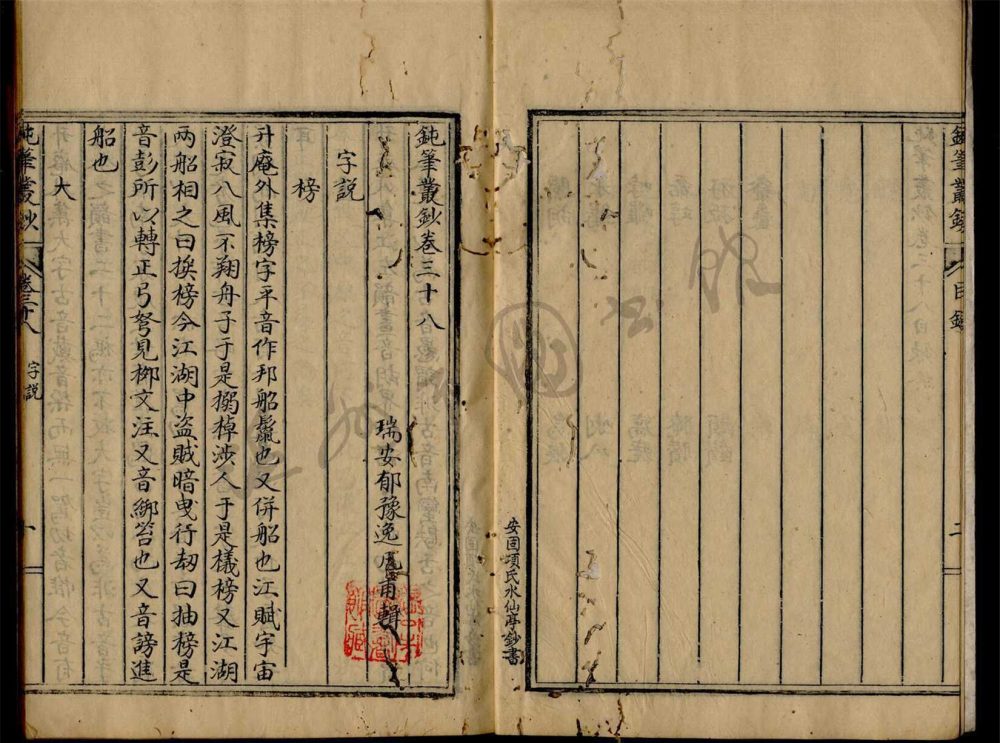 鈍筆叢鈔 目錄 二
安固項氏水仙亭鈔書
鈍筆叢鈔卷三十八
瑞安郁豫逸亭甫輯
字説
榜
升庵外集榜字平音作邦船鬛也又併船也江賦宇宙
澄寂八風不翔舟子于是搦棹涉人于是檥榜又江湖
兩船相之曰挨榜今江湖中盜賊暗曳行刼曰抽榜是
音彭所以轉正弓弩見栁文注又音綁笞也又音謗進
船也
大
鈍筆叢鈔 卷三十八 字説